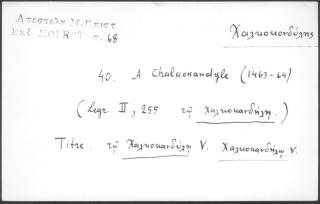 Αποστολη Μ. Επιστ
Εκδ NOIRET σ. 68
Χαλκοκονδύλης
40. A Chalcokandyle (1463-64)
(Legr II, 255 τῷ Χαλκοκανδήλῃ.)
Titre. τῷ Χαλκοκανδύλῃ V. Χαλκοκανδήλῳ V.